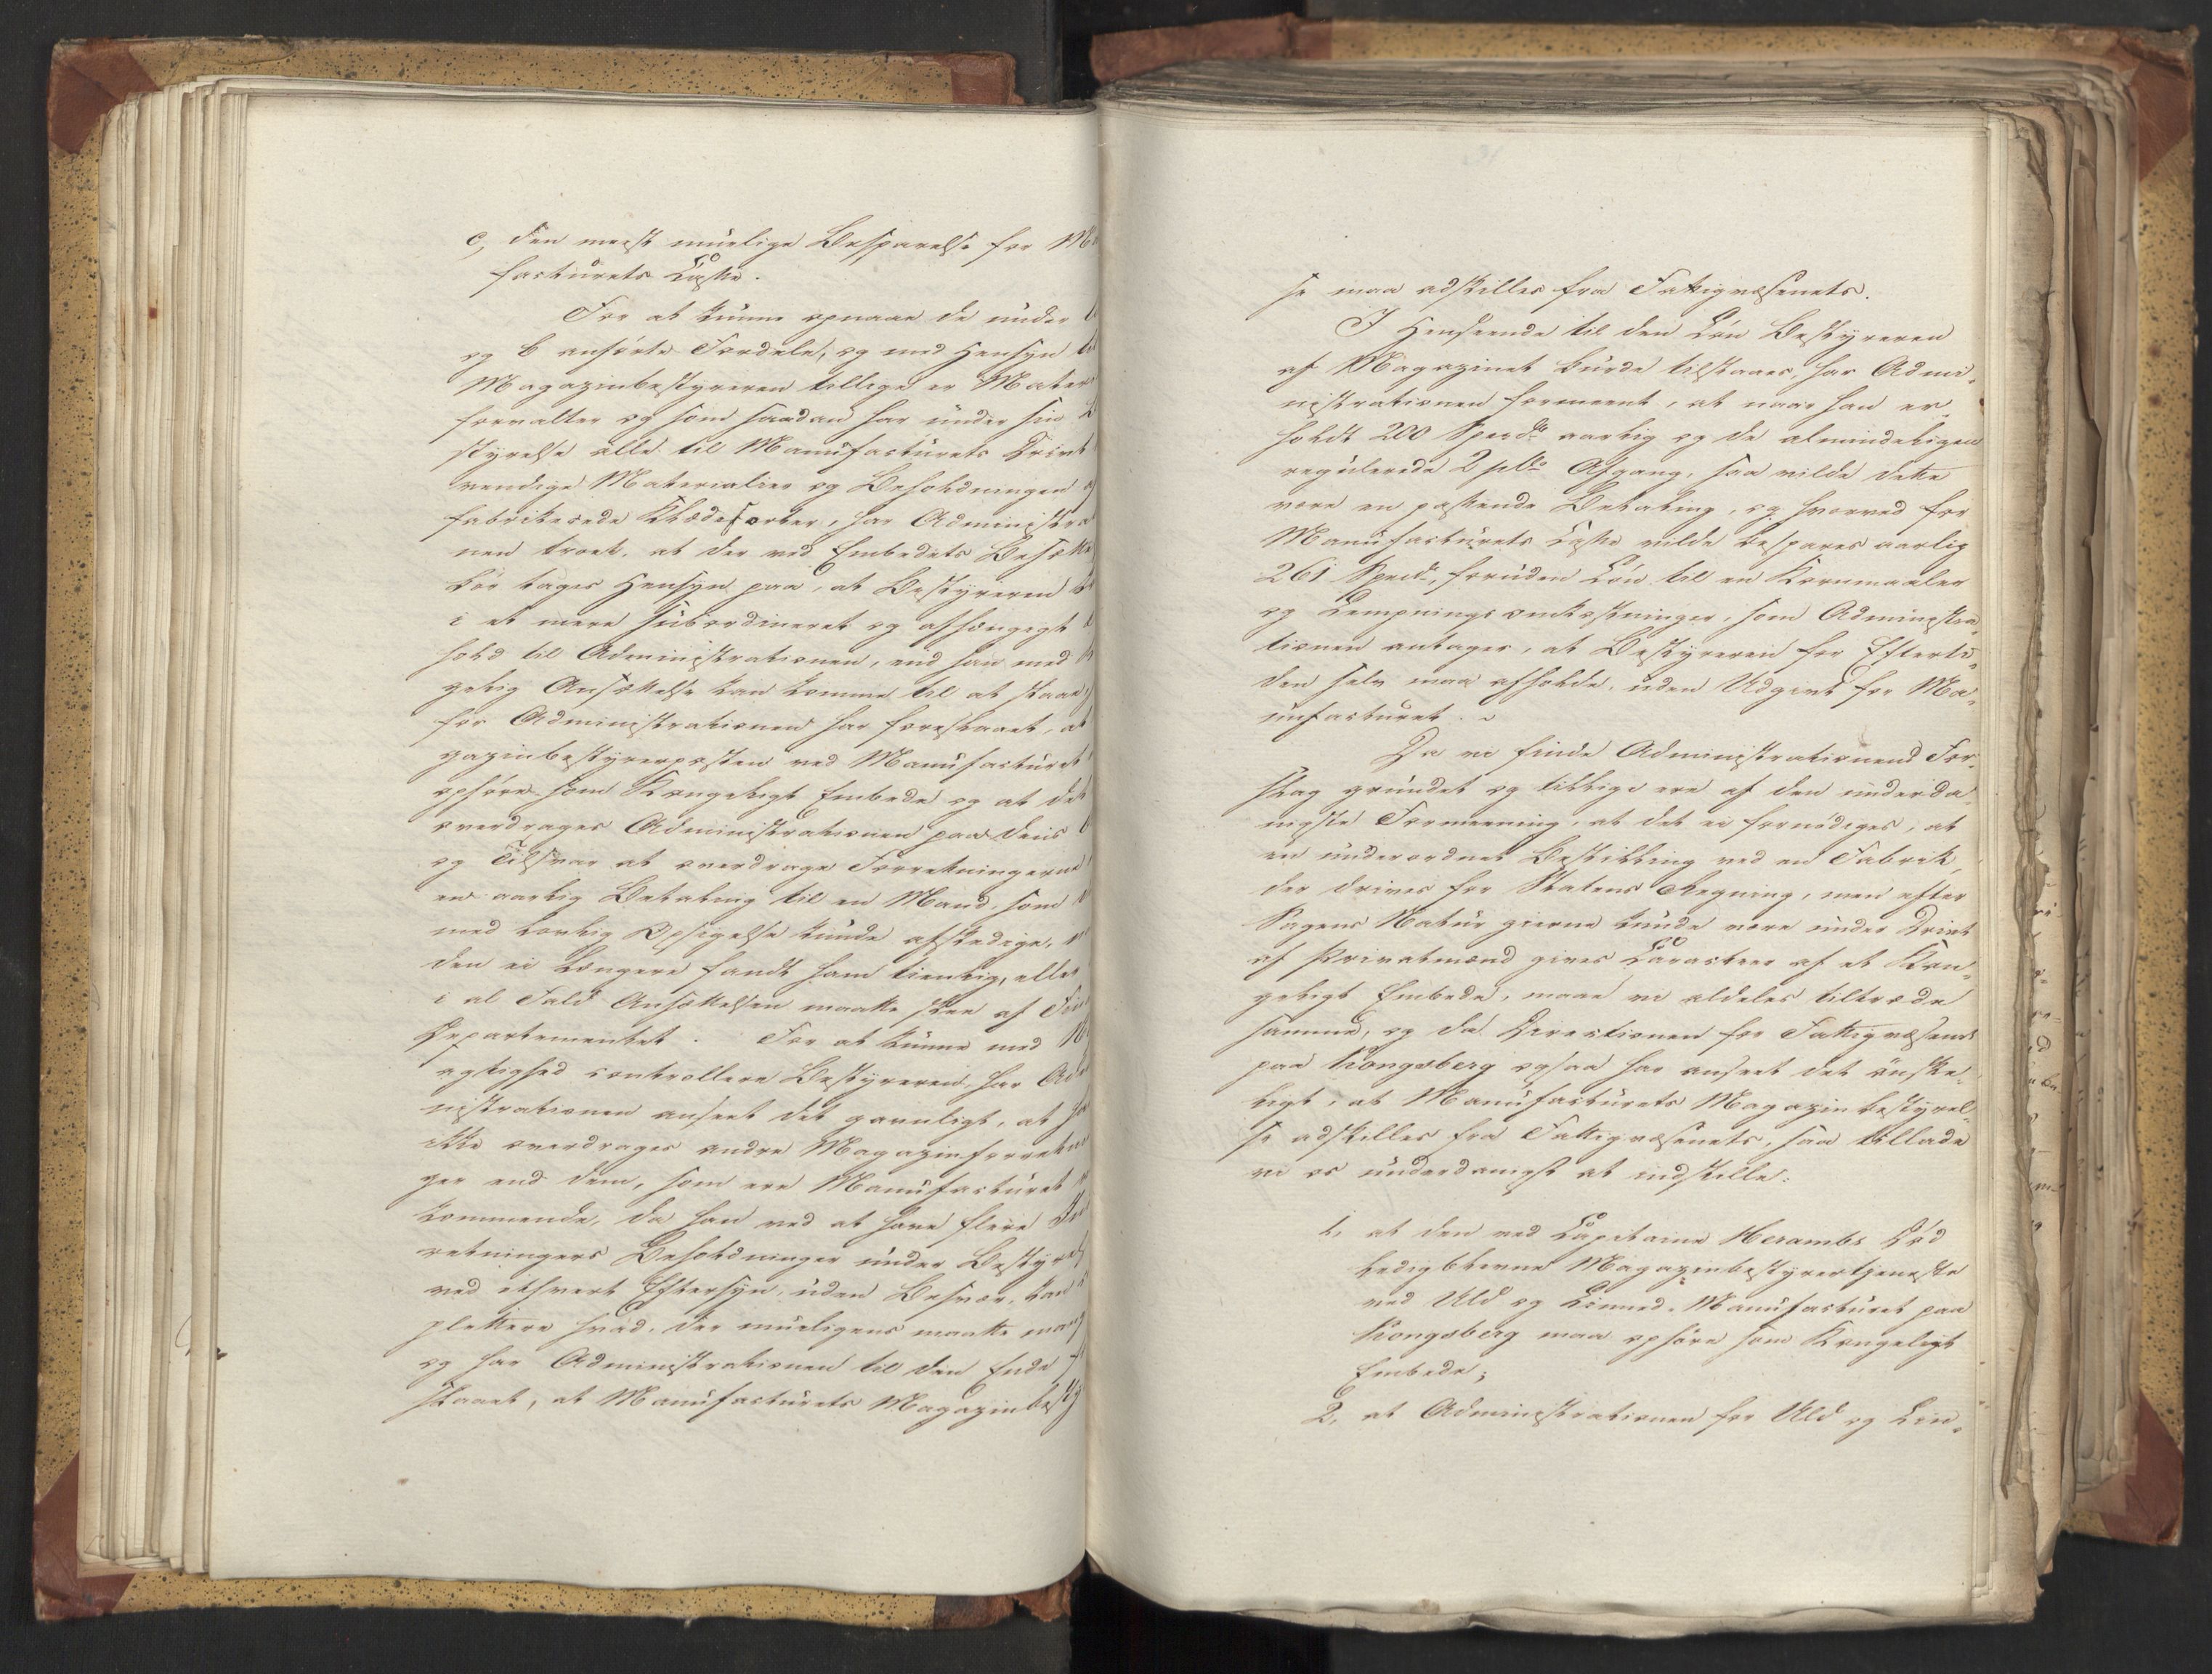 c, den meest muelige Besparelse for Ma
facturets Casse.
For at kunne opnaae de under
og b anførte Fordele, og med Hensyn til
Magazinbestyreren tillige er Materi
forvalter og som saadan har under sin B
styrelse alle til Manufacturets Drivt
vendige Materialier og Beholdningen af
fabrikerede Klædesorter, har Administra
nen troet, at der ved Embedets Besætte
bør tages Hensyn paa, at Bestyreren
i et mere subordineret og afhængigt
hold til Administrationen, end han med
gelig Ansættelse kan komme til at staae,
for Administrationen har foreslaaet, at
gazinbestyrerposten ved Manufacturet
ophøre som Kongeligt Embede og at det
overdrages Administrationen paa dens
og Tilsvar at overdrage Forretningerne
en aarlig Betaling til en Mand, som
med lovlig Opsigelse kunde afskedige, n
den ei længere fandt ham tienlig, eller
i al Fald Ansættelsen maatte skee af Fin
Departementet. For at kunne med N
agtighed controllere Bestyreren, har Adm
nistrationen anseet det gavnligt, at ha
ikke overdrages andre Magazinforretnin
ger end dem, som ere Manufacturet
kommende, da han ved at have flere Ind
retningers Beholdninger under Bestyrel
ved ethvert Eftersyn, uden Besvær, kan
plettere hvad, der mueligens maatte mang
og har Administrationen til den Ende f
slaaet, at Manufacturets Magazinbesty
se maa adskilles fra Fattigvæsenets.
I Henseende til den Løn Bestyreren
af Magazinet burde tilstaaes, har Admi-
nistrationen formeent, at naar han er-
holdt 200 Specd. aarlig og de almindeligen
regulerede 2 pCto Afgang, saa vilde dette
være en passende Betaling, og hvorved for
Manufacturets Casse vilde bespares aarlig
261 Specd., foruden Løn til en Kornmaaler
og Lempningsomkostninger, som Administra-
tionen antager, at Bestyreren for Efterti-
den selv maa afholde, uden Udgivt for Ma-
nufacturet.
Da vi finde Administrationens For-
slag grundet og tillige ere af den underda-
nigste Formeening, at det ei fornødiges, at
en underordnet Bestilling ved en Fabrik,
der drives for Statens Regning, men efter
Sagens Natur gierne kunde være under Drivt
af Privatmænd gives Caracteer af et Kon-
geligt Embede, maae vi aldeles tiltræde
samme, og da Directionen for Fattigvæsenet
paa Kongsberg ogsaa har anseet det ønske-
ligt, at Manufacturets Magazinbestyrel-
se adskilles fra Fattigvæsenets, saa tillade
vi os underdanigst at indstille:
1, at den ved Capitaine Herambs Død
ledigblevne Magazinbestyrertjeneste
ved Uld og Linned-Manufacturet paa
Kongsberg maa ophøre som Kongeligt
Embede;
2, at Administrationen for Uld og Lin-